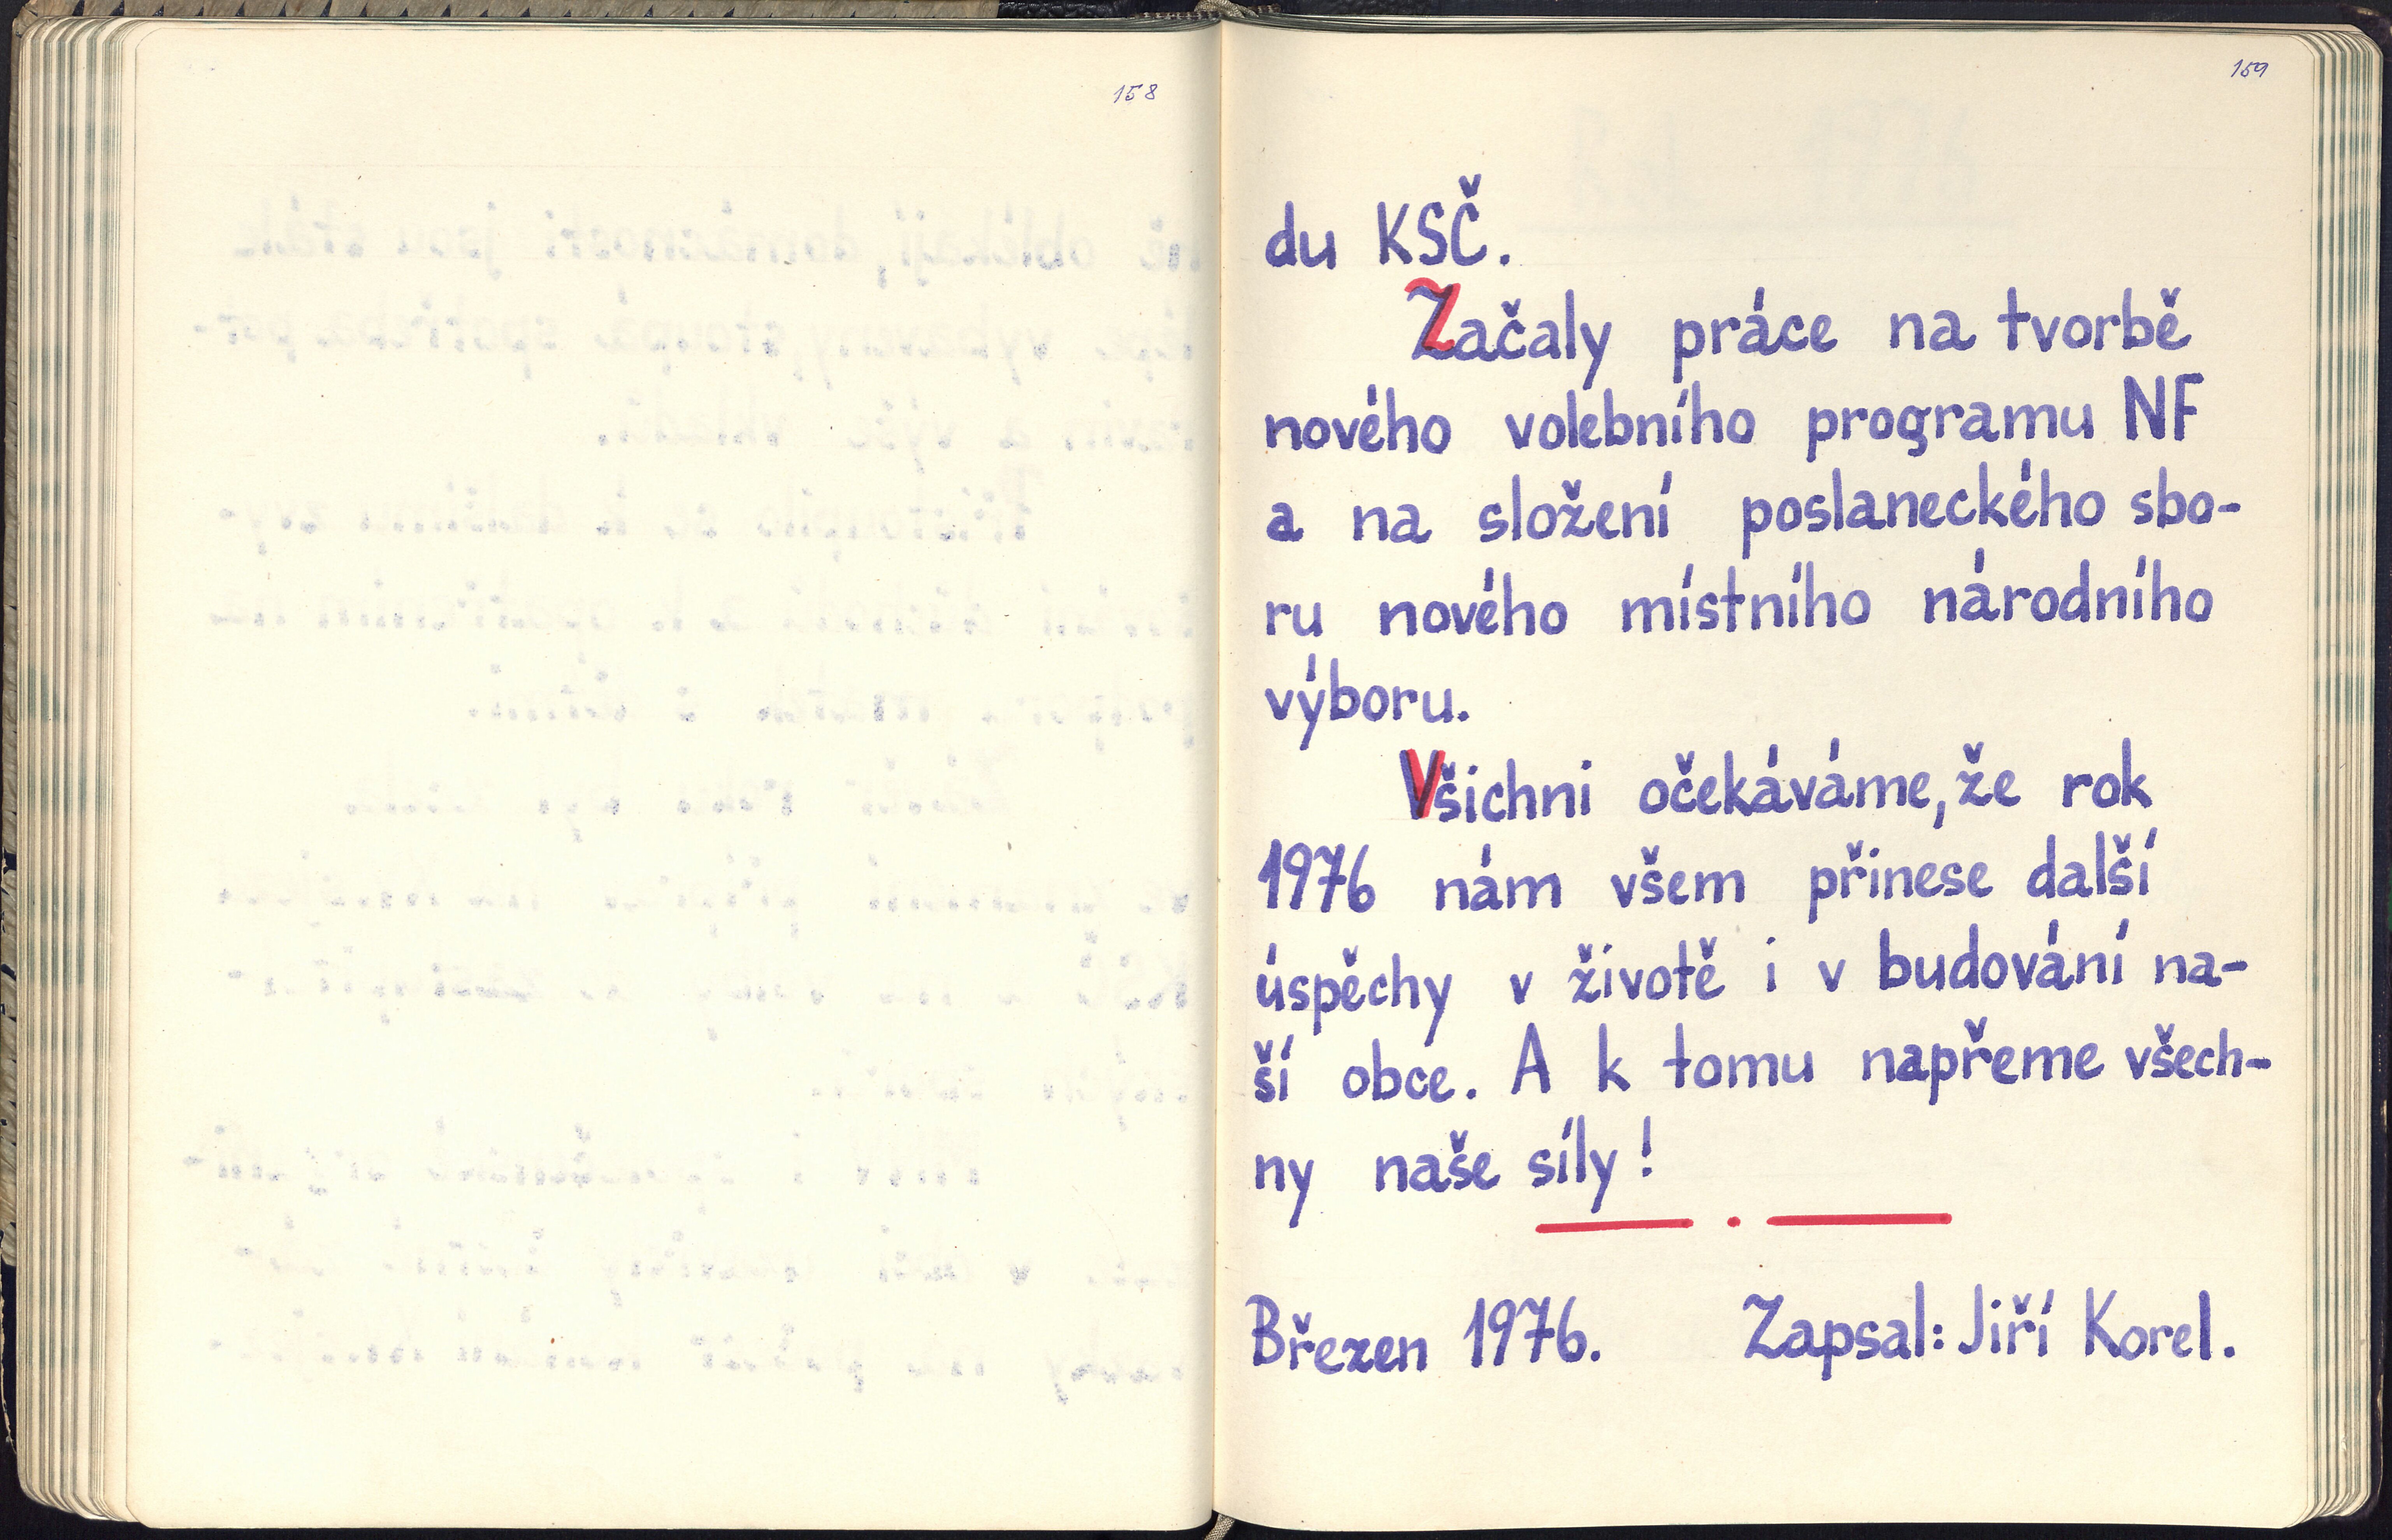 158
159
du KSČ.
Začaly práce na tvorbě
nového volebního programu NF
a na složení poslaneckého sbo-
ru nového místního národního
výboru.
Všichni očekáváme, že rok
1976 nám všem přinese další
úspěchy v životě i v budování na-
ší obce. A k tomu napřeme všech-
ny naše síly!
Březen 1976. Zapsal: Jiří Korel.